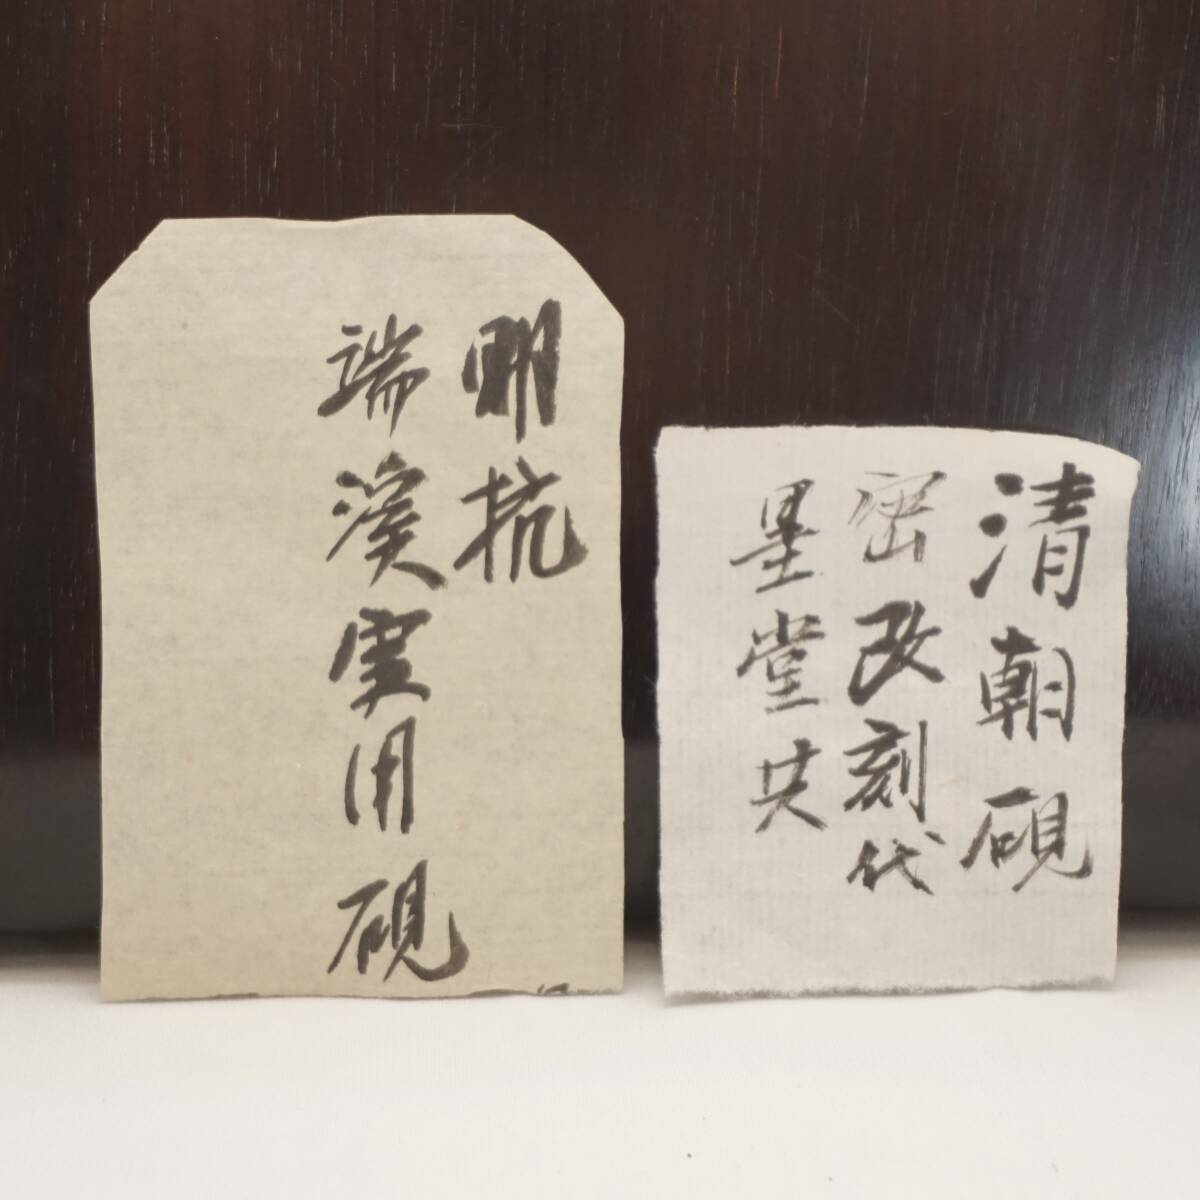 明抗
端溪実用硯
清朝硯
密改刻代
墨堂共